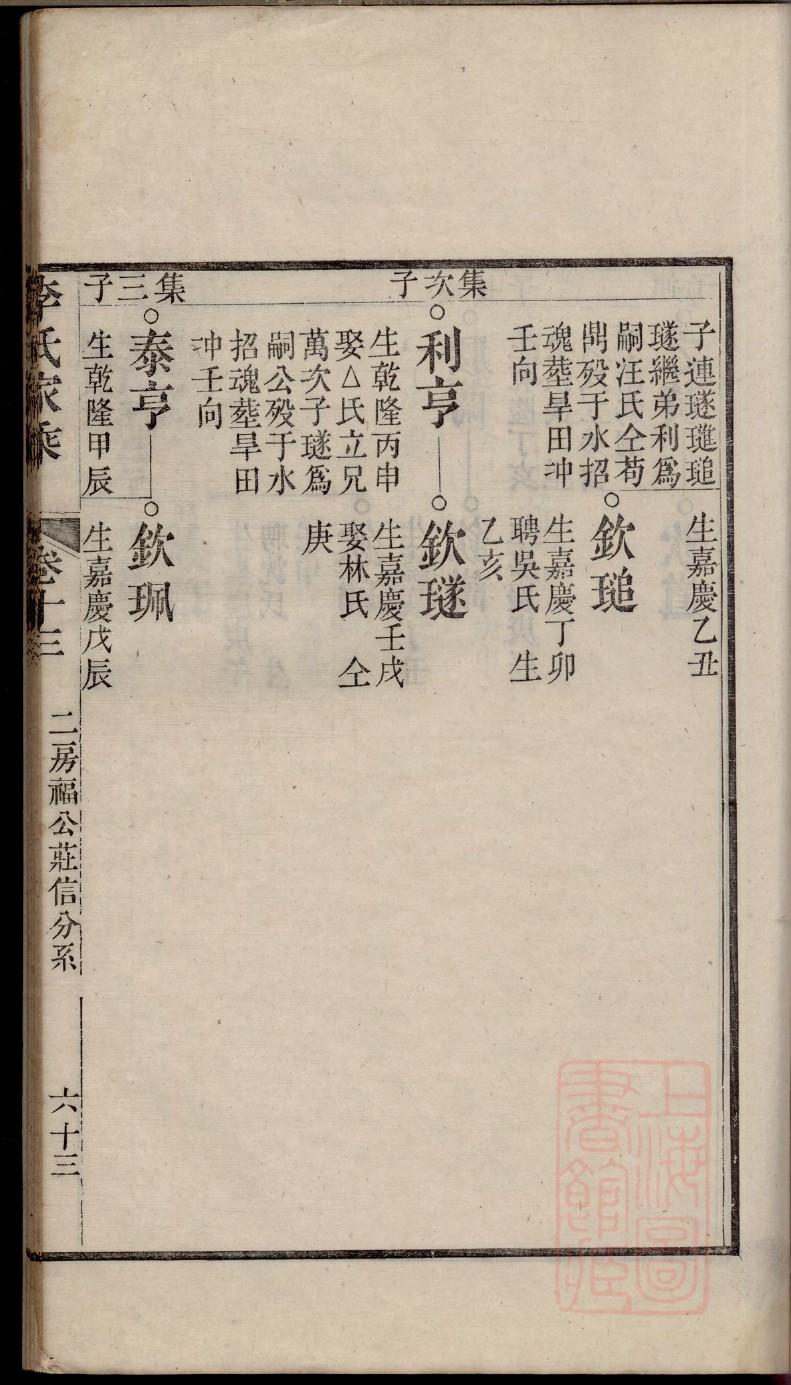 子連璲璡
璲繼弟利爲
嗣汪氏仝苟
鼎歿于水招
魂塟旱田冲
壬向
生嘉慶乙丑
欽
生嘉慶丁卯
聘吳氏 生
乙亥
集次子
利亨
生乾隆丙申
娶△氏立兄
萬次子璲爲
嗣公歿于水
招魂塟旱田
冲壬向
欽璲
生嘉慶壬戌
娶林氏 仝
庚
集三子
泰亨
生乾隆甲辰
欽珮
生嘉慶戊辰
李氏家乘
卷十三
二房福公莊信分系
六十三
上海圖
書館藏